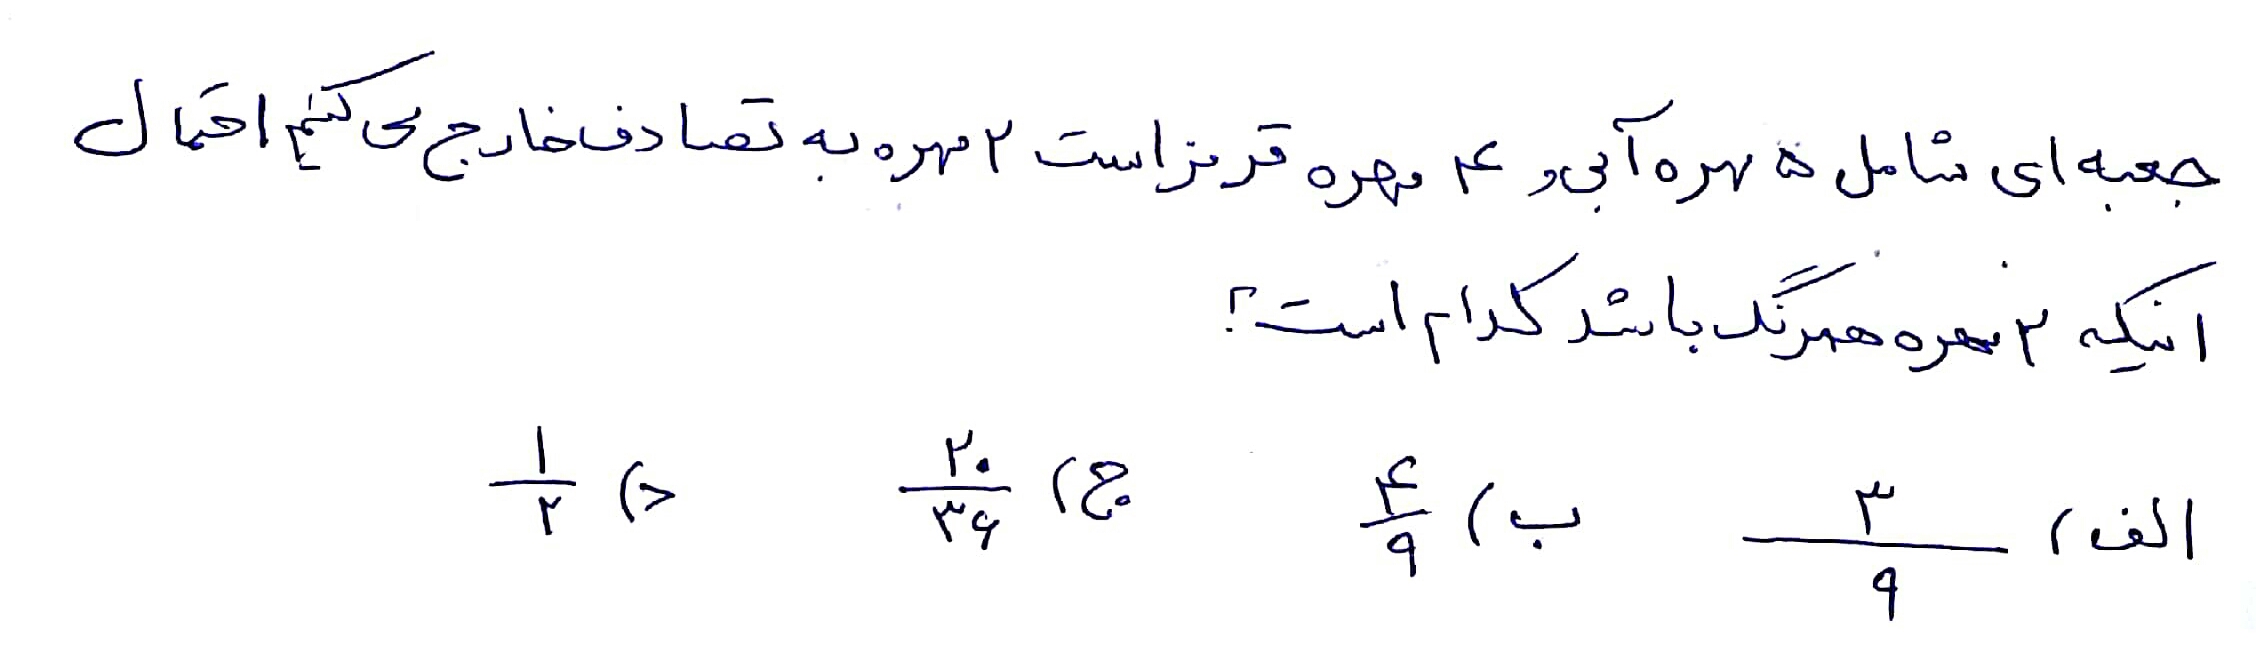 جعبه ای شامل ۵ مهره آبی و ۴ مهره قرمز است ۲ مهره به تصادف خارج می کنیم احتمال
اینکه ۲ مهره همرنگ باشد کدام است؟
الف) ۳/۹ ب) ۴/۹ ج) ۲۰/۳۶ د) ۱/۲